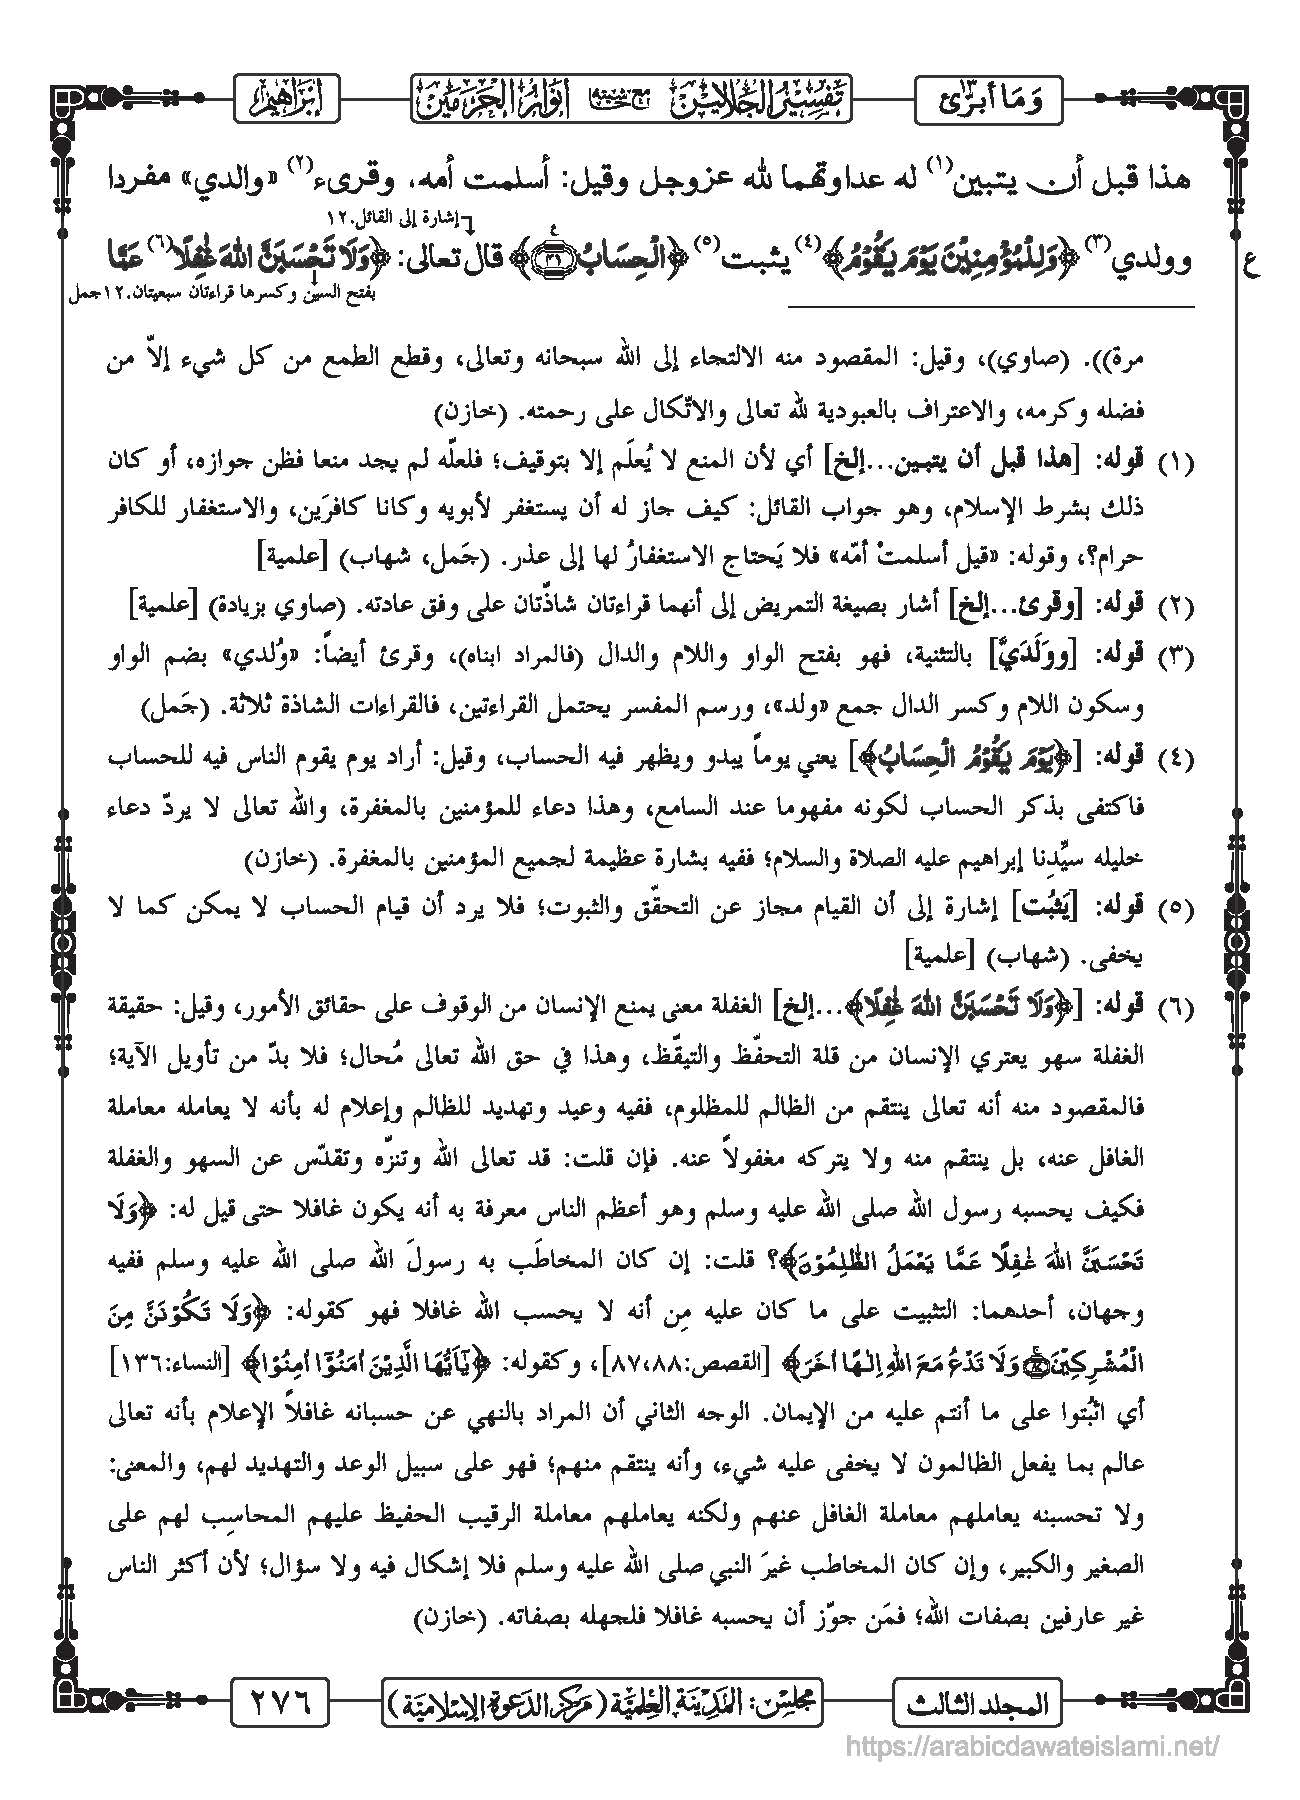 وَمَا أبرِّئ ١٣
تفسير الجلالين مع حاشيته أنوار الحرمين
إبراهيم
هذا قبل أن يتبين(١) له عداوتهما لله عزوجل وقيل: أسلمت أمه، وقرىء(٢) «والدي» مفردا
إشارة إلى القائل.١٢
وولدي(٣) ﴿وَلِلْمُؤْمِنِيْنَ يَوْمَ يَقُوْمُ﴾(٤) يثبت(٥) ﴿الْحِسَابُ ﴿٤١﴾﴾ قال تعالى: ﴿وَلَا تَحْسَبَنَّ اللهَ غٰفِلًا(٦) عَمَّا
ع
بفتح السين وكسرها قراءتان سبعيتان.١٢جمل
مرة)). (صاوي)، وقيل: المقصود منه الالتجاء إلى الله سبحانه وتعالى، وقطع الطمع من كل شيء إلاّ من
فضله وكرمه، والاعتراف بالعبودية لله تعالى والاتّكال على رحمته. (خازن)
(١) قوله: [هذا قبل أن يتبين...إلخ] أي لأن المنع لا يُعلَم إلا بتوقيف؛ فلعلّه لم يجد منعا فظن جوازه، أو كان
ذلك بشرط الإسلام، وهو جواب القائل: كيف جاز له أن يستغفر لأبويه وكانا كافرَين، والاستغفار للكافر
حرام؟، وقوله: «قيل أسلمتْ أمّه» فلا يَحتاج الاستغفارُ لها إلى عذر. (جَمل، شهاب) [علمية]
(٢) قوله: [وقرئ...إلخ] أشار بصيغة التمريض إلى أنهما قراءتان شاذّتان على وفق عادته. (صاوي بزيادة) [علمية]
(٣) قوله: [ووَلَدَيَّ] بالتثنية، فهو بفتح الواو واللام والدال (فالمراد ابناه)، وقرئ أيضاً: «وُلدي» بضم الواو
وسكون اللام وكسر الدال جمع «ولد»، ورسم المفسر يحتمل القراءتين، فالقراءات الشاذة ثلاثة. (جَمل)
(٤) قوله: [﴿يَوْمَ يَقُوْمُ الْحِسَابُ﴾] يعني يوماً يبدو ويظهر فيه الحساب، وقيل: أراد يوم يقوم الناس فيه للحساب
فاكتفى بذكر الحساب لكونه مفهوما عند السامع، وهذا دعاء للمؤمنين بالمغفرة، والله تعالى لا يردّ دعاء
خليله سيِّدِنا إبراهيم عليه الصلاة والسلام؛ ففيه بشارة عظيمة لجميع المؤمنين بالمغفرة. (خازن)
(٥) قوله: [يَثبُت] إشارة إلى أن القيام مجاز عن التحقّق والثبوت؛ فلا يرد أن قيام الحساب لا يمكن كما لا
يخفى. (شهاب) [علمية]
(٦) قوله: [﴿وَلَا تَحْسَبَنَّ اللهَ غٰفِلًا﴾...إلخ] الغفلة معنى يمنع الإنسان من الوقوف على حقائق الأمور، وقيل: حقيقة
الغفلة سهو يعتري الإنسان من قلة التحفّظ والتيقّظ، وهذا في حق الله تعالى مُحال؛ فلا بدّ من تأويل الآية؛
فالمقصود منه أنه تعالى ينتقم من الظالم للمظلوم، ففيه وعيد وتهديد للظالم وإعلام له بأنه لا يعامله معاملة
الغافل عنه، بل ينتقم منه ولا يتركه مغفولاً عنه. فإن قلت: قد تعالى الله وتنزّه وتقدّس عن السهو والغفلة
فكيف يحسبه رسول الله صلى الله عليه وسلم وهو أعظم الناس معرفة به أنه يكون غافلا حتى قيل له: ﴿وَلَا
تَحْسَبَنَّ اللهَ غٰفِلًا عَمَّا يَعْمَلُ الظّٰلِمُوْنَ﴾؟ قلت: إن كان المخاطَب به رسولَ الله صلى الله عليه وسلم ففيه
وجهان، أحدهما: التثبيت على ما كان عليه مِن أنه لا يحسب الله غافلا فهو كقوله: ﴿وَلَا تَكُوْنَنَّ مِنَ
الْمُشْرِكِيْنَ ﴿٨٧﴾ وَلَا تَدْعُ مَعَ اللهِ اِلٰهًا اٰخَرَ﴾ [القصص:٨٧،٨٨]، وكقوله: ﴿يٰۤاَيُّهَا الَّذِيْنَ اٰمَنُوْۤا اٰمِنُوْا﴾ [النساء:١٣٦]
أي اثبُتوا على ما أنتم عليه من الإيمان. الوجه الثاني أن المراد بالنهي عن حسبانه غافلاً الإعلام بأنه تعالى
عالم بما يفعل الظالمون لا يخفى عليه شيء، وأنه ينتقم منهم؛ فهو على سبيل الوعد والتهديد لهم، والمعنى:
ولا تحسبنه يعاملهم معاملة الغافل عنهم ولكنه يعاملهم معاملة الرقيب الحفيظ عليهم المحاسِب لهم على
الصغير والكبير، وإن كان المخاطب غيرَ النبي صلى الله عليه وسلم فلا إشكال فيه ولا سؤال؛ لأن أكثر الناس
غير عارفين بصفات الله؛ فمَن جوّز أن يحسبه غافلا فلجهله بصفاته. (خازن)
المجلد الثالث
مجلس: المدينة العلمية (مركز الدعوة الإسلامية)
٢٧٦
https://arabicdawateislami.net/